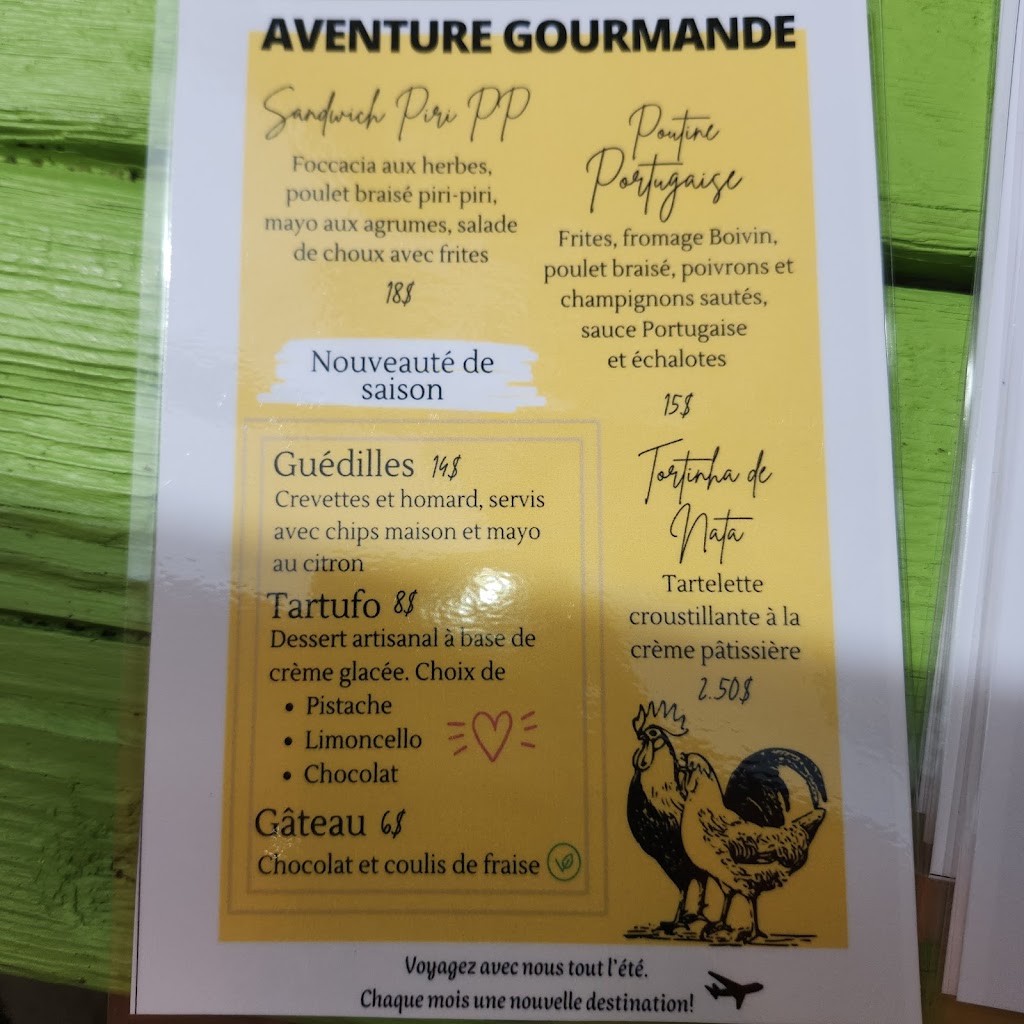 AVENTURE GOURMANDE
Sandwich Piri PP
Foccacia aux herbes,
poulet braisé piri-piri,
mayo aux agrumes, salade
de choux avec frites
18$
Poutine
Portugaise
Frites, fromage Boivin,
poulet braisé, poivrons et
champignons sautés,
sauce Portugaise
et échalotes
15$
Nouveauté de
saison
Guédilles 14$
Crevettes et homard, servis
avec chips maison et mayo
au citron
Tartufo 8$
Dessert artisanal à base de
crème glacée. Choix de
• Pistache
• Limoncello
• Chocolat
Gâteau 6$
Chocolat et coulis de fraise
Tortinha de
Nata
Tartelette
croustillante à la
crème pâtissière
2.50$
Voyagez avec nous tout l'été.
Chaque mois une nouvelle destination!